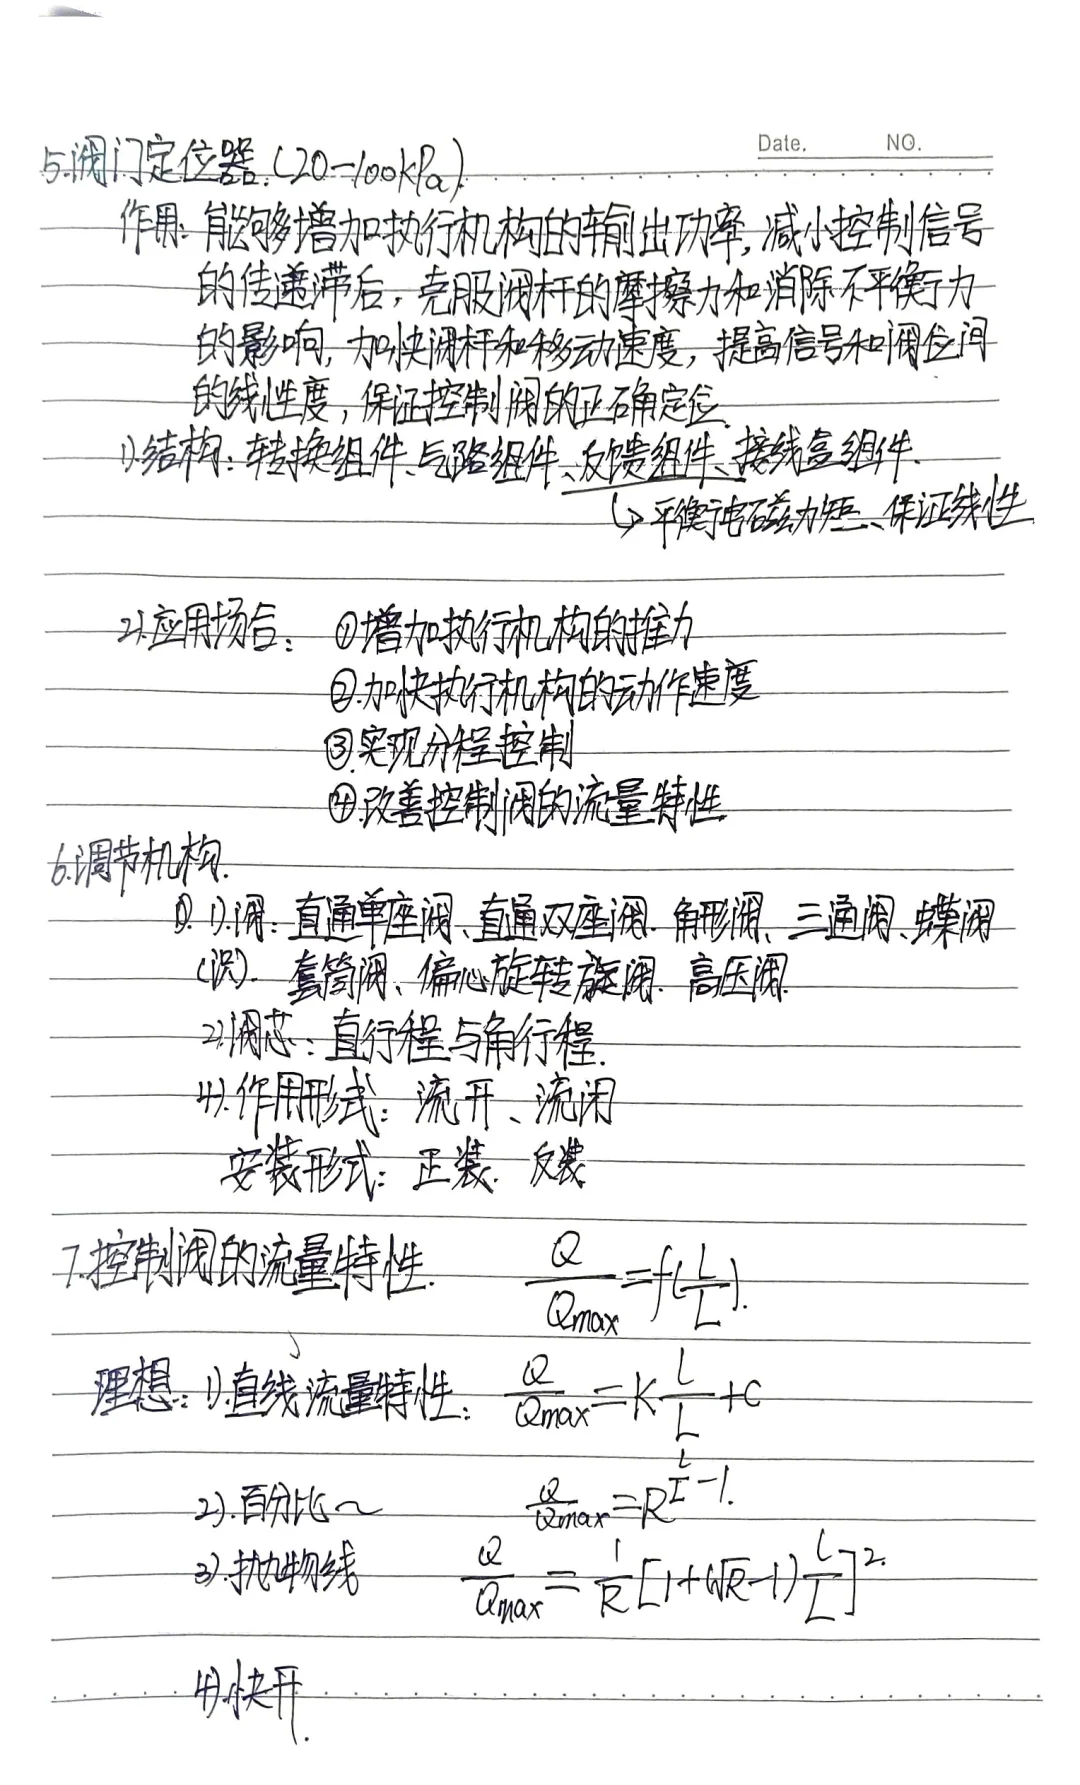 Date. NO.
5.阀门定位器.(20-100kPa).
作用: 能够增加执行机构的输出功率, 减小控制信号
的传递滞后, 克服阀杆的摩擦力和消除不平衡力
的影响, 加快阀杆和移动速度, 提高信号和阀位间
的线性度, 保证控制阀的正确定位.
1).结构: 转换组件、气路组件、反馈组件、接线盒组件.
↳ 平衡电磁力矩、保证线性
2).应用场合: ①增加执行机构的推力
②.加快执行机构的动作速度
③.实现分程控制
④.改善控制阀的流量特性.
6.调节机构.
1).阀: 直通单座阀、直通双座阀. 角形阀、三通阀、蝶阀
套筒阀、偏心旋转旋阀. 高压阀.
2).阀芯: 直行程与角行程.
4).作用形式: 流开、流闭
安装形式: 正装. 反装
7.控制阀的流量特性. Q/Qmax=f(l/L).
理想: 1).直线流量特性: Q/Qmax=K l/L+C
2).百分比~ Q/Qmax=R^(l/L-1).
3).抛物线 Q/Qmax=1/R[1+(√R-1)l/L]².
4)快开.